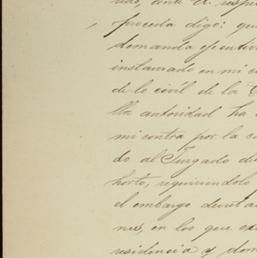 ante U.
proceda digo: que
demanda ejecutiv
instaurado en mi c
de lo civil de la C
lla autoridad ha
mi contra por la c
do al Juzgado de
horto, requiriendo
el embargo decret
nes, en los que ex
residencia y dom